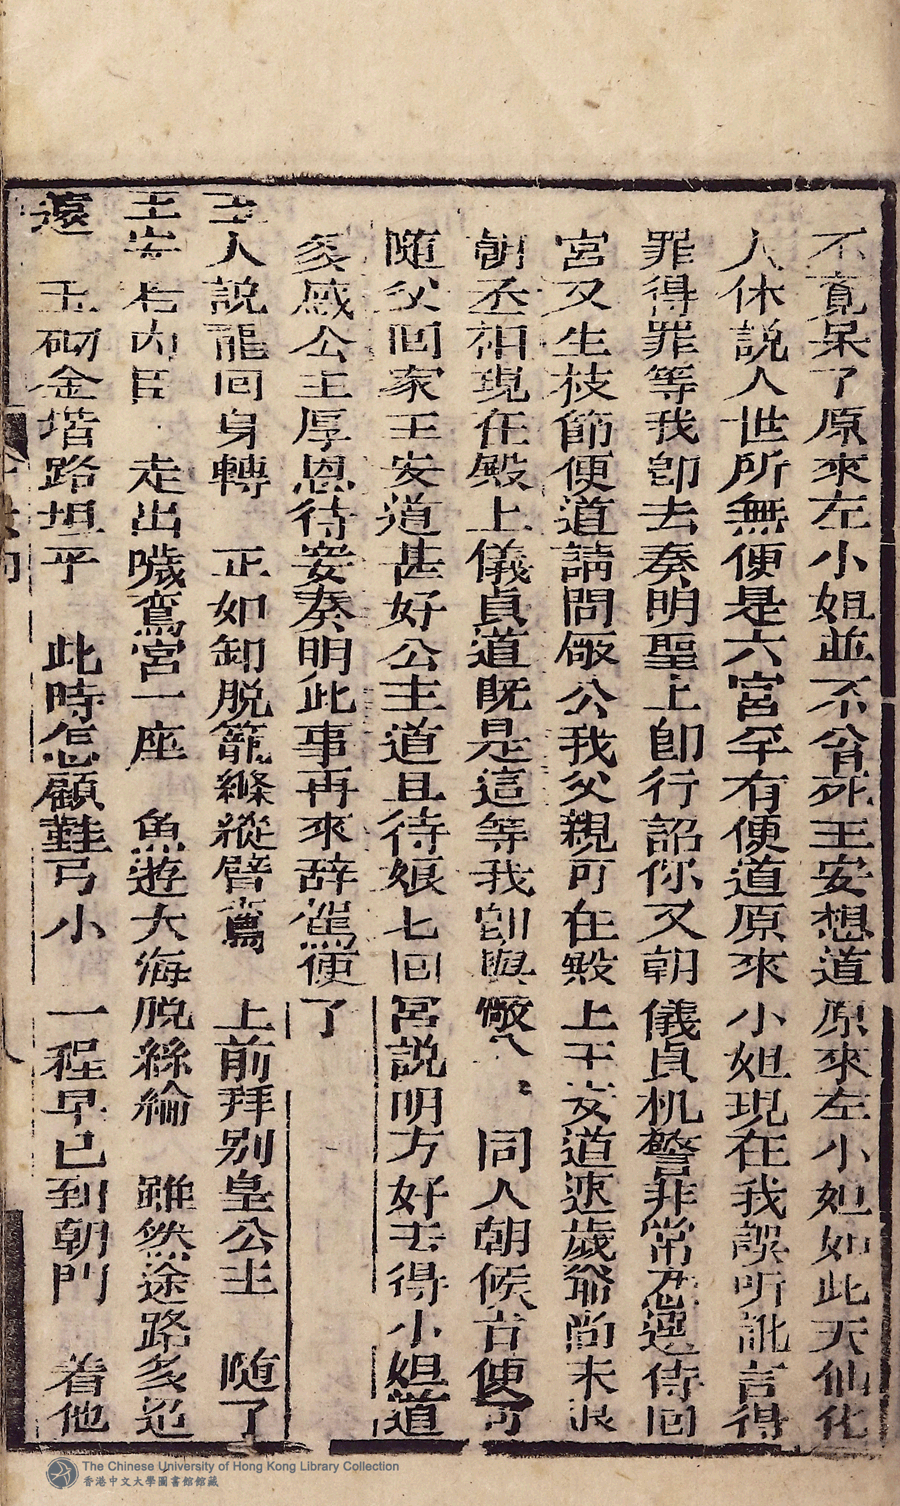 不竟呆了原來左小姐並不肯死王安想道原來左小姐如此天仙化
人休説人世所無便是六宮罕有便道原來小姐現在我誤听訛言得
罪得罪等我卽去奏明聖上卽行詔你又朝儀貞机警非常恐遲侍回
宮又生枝節便道請問廠公我父親可在殿上王安道速歲爺尚未退
朝丞相現在殿上儀貞道既是這等我卽與廠公同人朝候旨便可
随父回家王安道甚好公主道且待娘七回宮説明方好去得小姐道
多感公主厚恩待妾奏明此事再來辞駕便了
主人説罷回身轉 正如卸脱籠縧縱臂鷹 上前拜别皇公主 随了
王安七内臣 走出噦鸞宮一座 魚遊大海脱絲綸 雖然途路多迢
遠 玉砌金堦路坦平 此時怎顧鞋弓小 一程早已到朝門 着他
The Chinese University of Hong Kong Library Collection
香港中文大學圖書館館藏